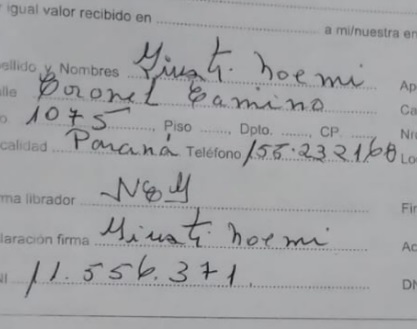 igual valor recibido en
a mi/nuestra en
ellido y Nombres Giusti. Noemi Ap
lle Coronel Camino Ca
o. 1075, Piso, Dpto., CP. Nr
calidad Paraná Teléfono 155.232160 Lo
ma librador Fir
laración firma Giusti Noemi Ac
11.556.371. DN